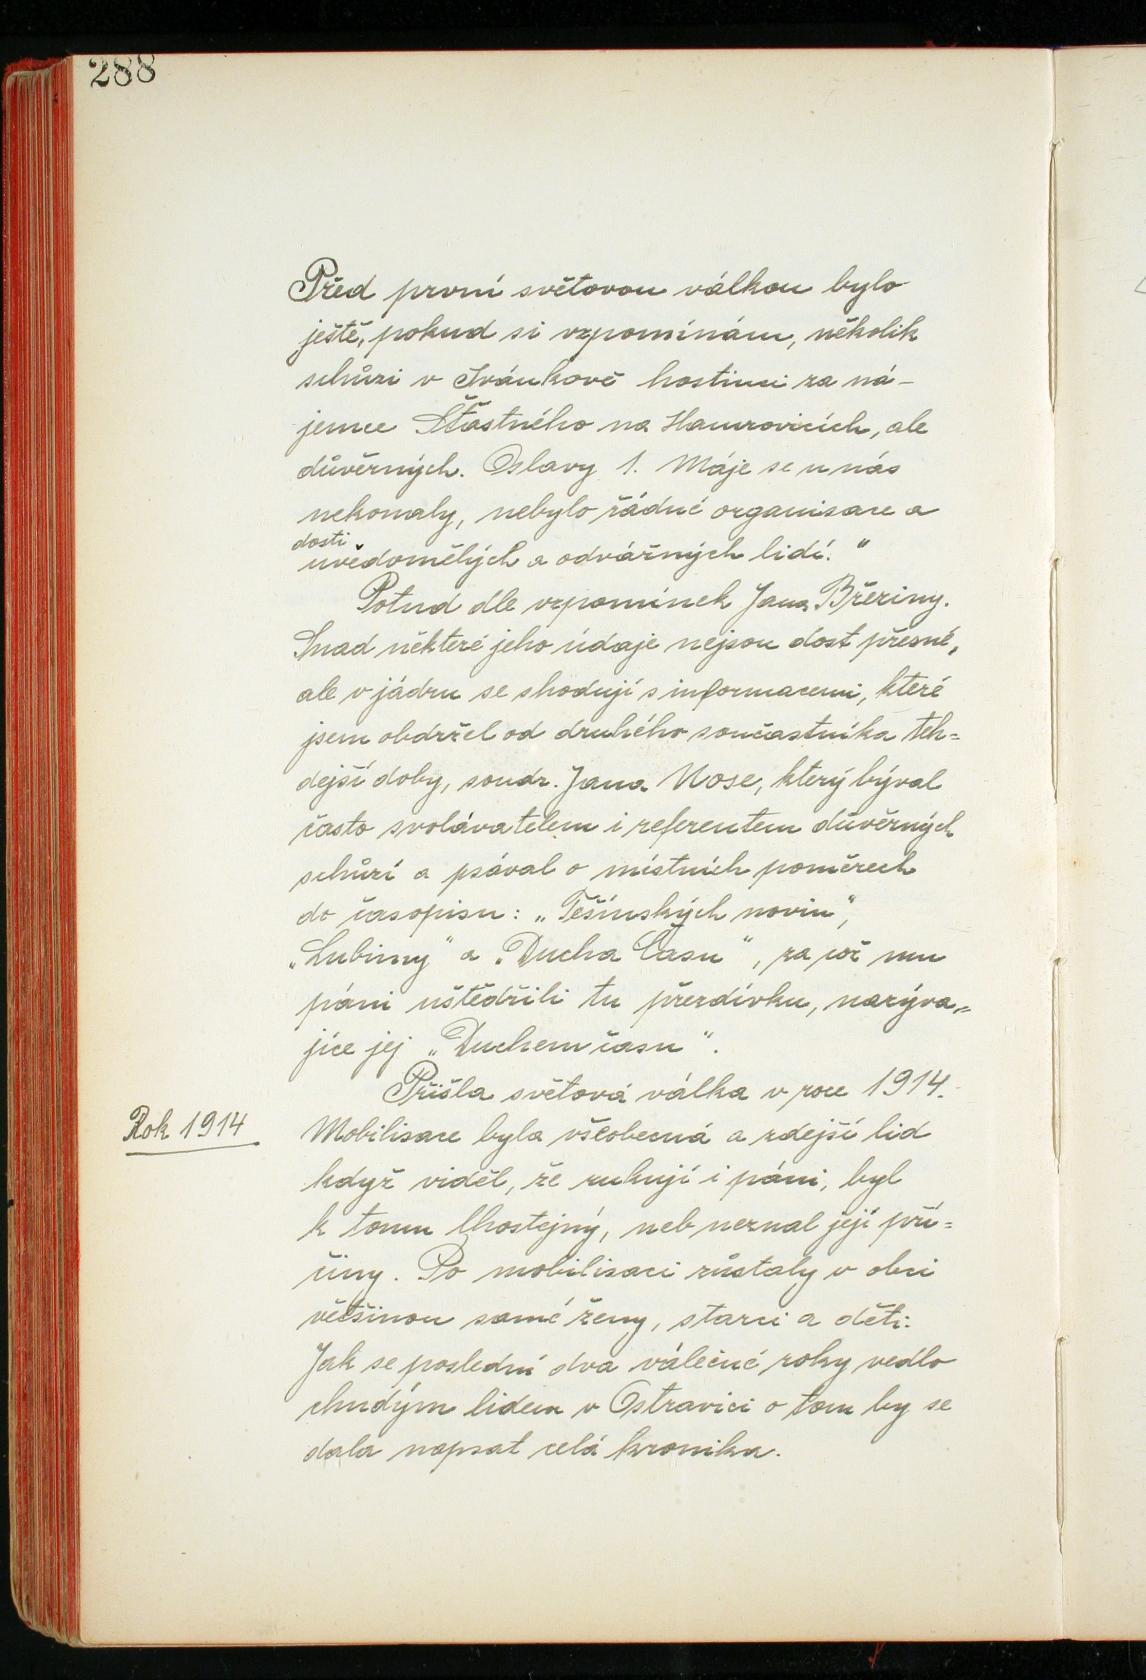 288
Před první světovou válkou bylo
ještě, pokud si vzpomínám, několik
schůzí v Ivánkově hostinci za ná-
jemce Šťastného na Hamrovicích, ale
důvěrných. Oslavy 1. Máje se u nás
nekonaly, nebylo řádné organisace a
dosti
uvědomělých a odvážných lidí."
Potud dle vzpomínek Jana Březiny.
Snad některé jeho údaje nejsou dost přesné,
ale v jádru se shodují s informacemi, které
jsem obdržel od druhého součastníka teh=
dejší doby, soudr. Jana Nose, který býval
často svolávatelem i referentem důvěrných
schůzí a psával o místních poměrech
do časopisu: „Těšínských novin",
„Lubiny" a „Ducha Času", za což mu
páni uštědřili tu přezdívku, nazýva„
jíce jej „Duchem času".
Přišla světová válka v roce 1914.
Rok 1914
Mobilisace byla všeobecná a zdejší lid
když viděl, že rukují i páni, byl
k tomu lhostejný, neb neznal její pří=
činy. Po mobilisaci zůstaly v obci
většinou samé ženy, starci a děti.
Jak se poslední dva válečné roky vedlo
chudým lidem v Ostravici o tom by se
dala napsat celá kronika.